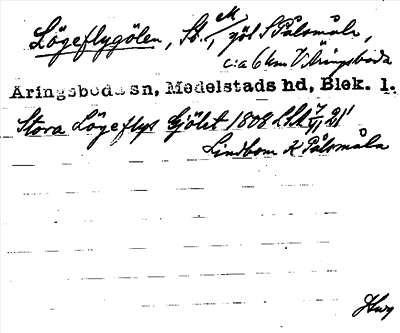 Lögeflygölen, St., göl S Pålsmåla,
c:a 6 km V Åringsboda
Åringsboda sn, Medelstads hd, Blek. l.
Stora Lögeflys Gjölet 1808 LSA
Lindbom K Pålsmåla